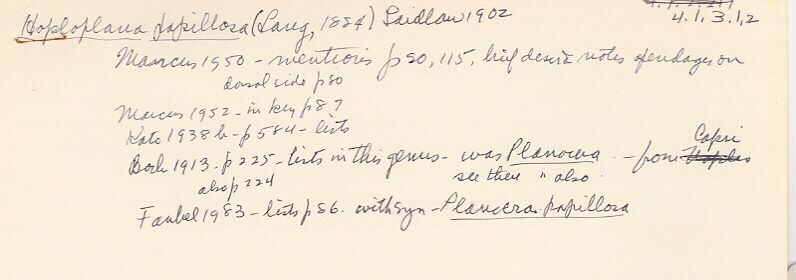 Hoploplana papillosa (Lang, 1884) Laidlaw 1902
4.1.3.1.2
Marcus 1950 - mentions p 90, 115, brief descr. notes appendages on
dorsal side p 80
Marcus 1952 - in key p 87
Kato 1938b - p 584 - lists
Bock 1913 - p 225 - lists in this genus - was Planocera - from Capri
also p 224 see there " also.
Faubel 1983 - lists p 86. with syn - Planocera papillosa